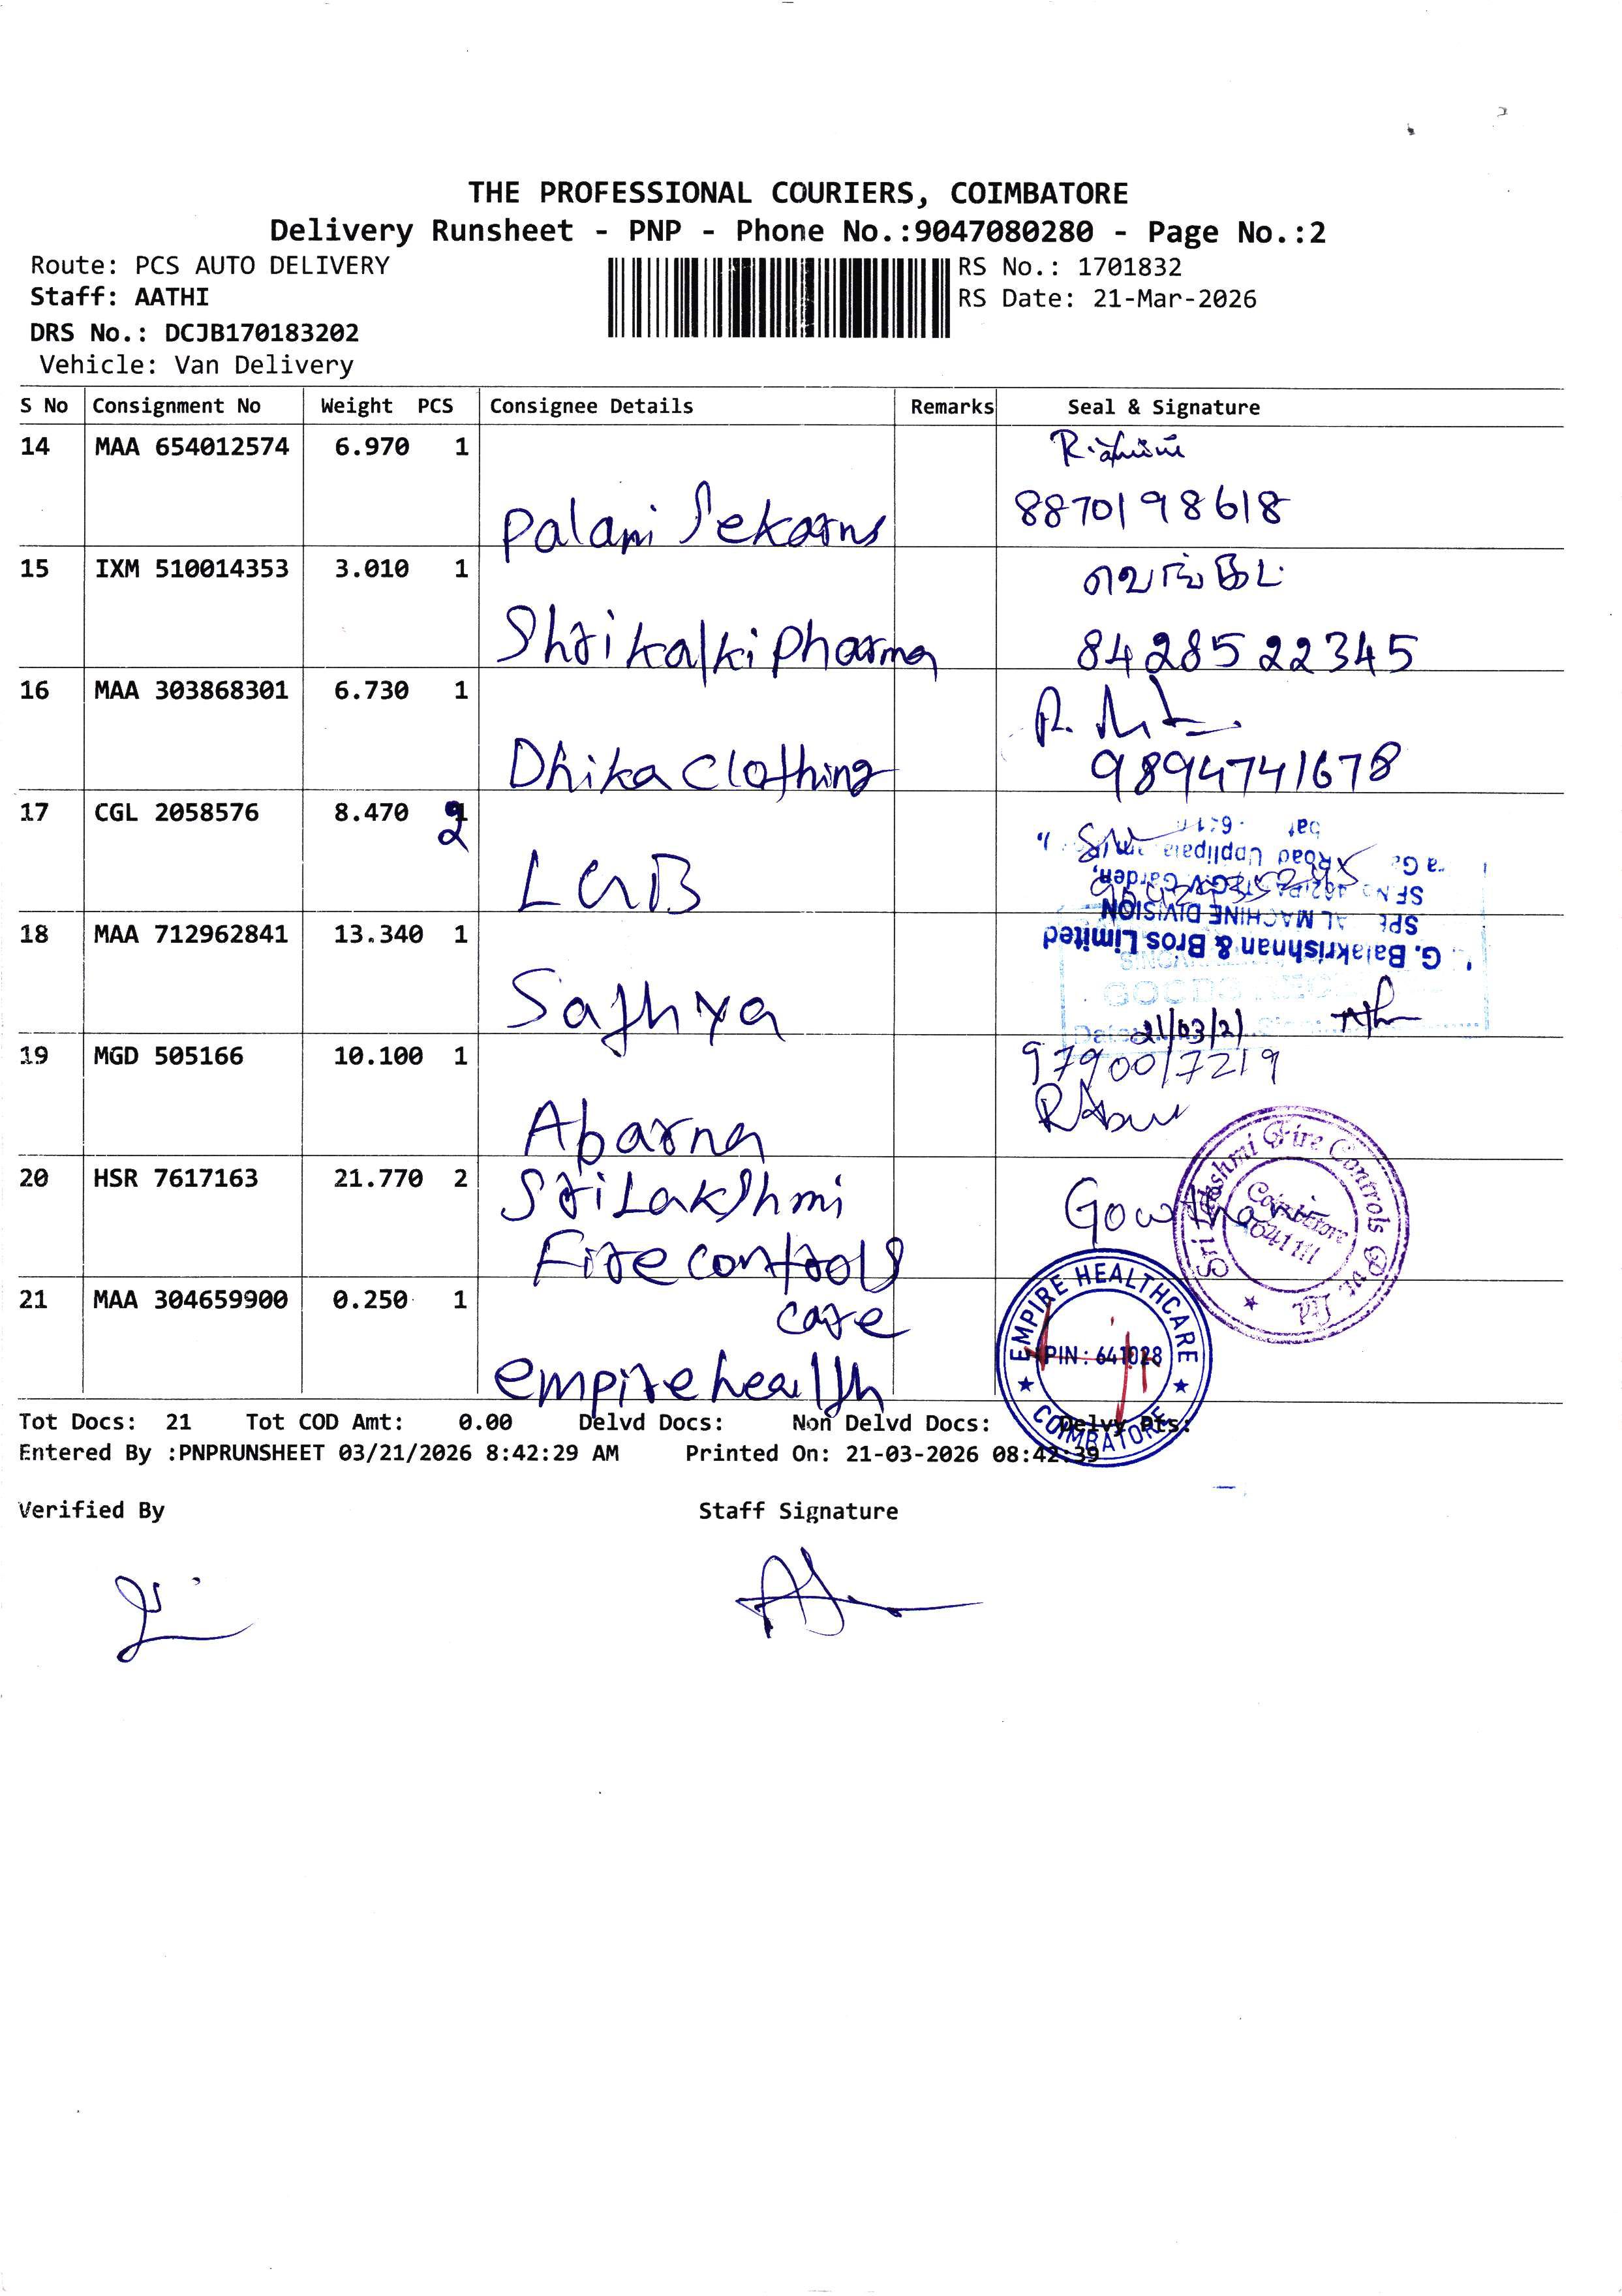 THE PROFESSIONAL COURIERS, COIMBATORE
Delivery Runsheet - PNP - Phone No.:9047080280 - Page No.:2
Route: PCS AUTO DELIVERY
RS No.: 1701832
Staff: AATHI
RS Date: 21-Mar-2026
DRS No.: DCJB170183202
Vehicle: Van Delivery
S No Consignment No Weight PCS Consignee Details Remarks Seal & Signature
14 MAA 654012574 6.970 1
Palani Sekarns
8870198618
15 IXM 510014353 3.010 1
வெங்கட்
Shri kalki pharma
8428522345
16 MAA 303868301 6.730 1
Dhika Clothing
9894741678
17 CGL 2058576 8.470 2
LGB
G. Balakrishnan & Bros Limited
MACHINE DIVISION
Garden,
Road
18 MAA 712962841 13.340 1
Sathya
GOODS
Date
21/03/21
19 MGD 505166 10.100 1
9790017219
Abarna
20 HSR 7617163 21.770 2
Sri Lakshmi
Fire controls
Gowtham
Sri Lakshmi Fire Controls Pvt. Ltd.
Coimbatore
641111
21 MAA 304659900 0.250 1
care
empire health
EMPIRE HEALTHCARE
PIN : 641028
COIMBATORE
Tot Docs: 21 Tot COD Amt: 0.00 Delvd Docs: Non Delvd Docs: Delvy Pts:
Entered By :PNPRUNSHEET 03/21/2026 8:42:29 AM Printed On: 21-03-2026 08:42:39
Verified By Staff Signature